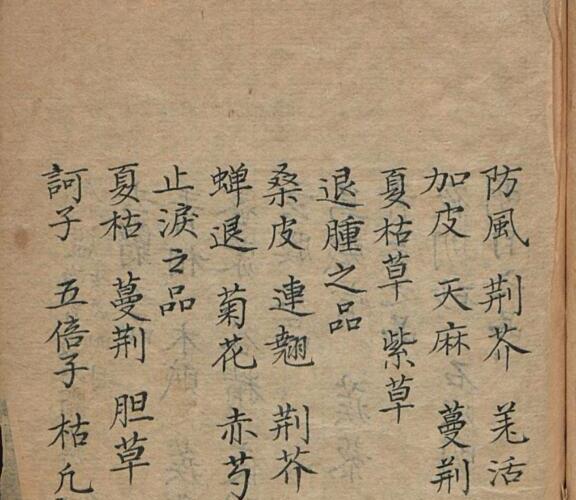 防風 荆芥 羌活
加皮 天麻 蔓荆
夏枯草 紫草
退腫之品
桑皮 連翹 荆芥
蝉退 菊花 赤芍
止淚之品
夏枯 蔓荆 胆草
訶子 五倍子 枯凡